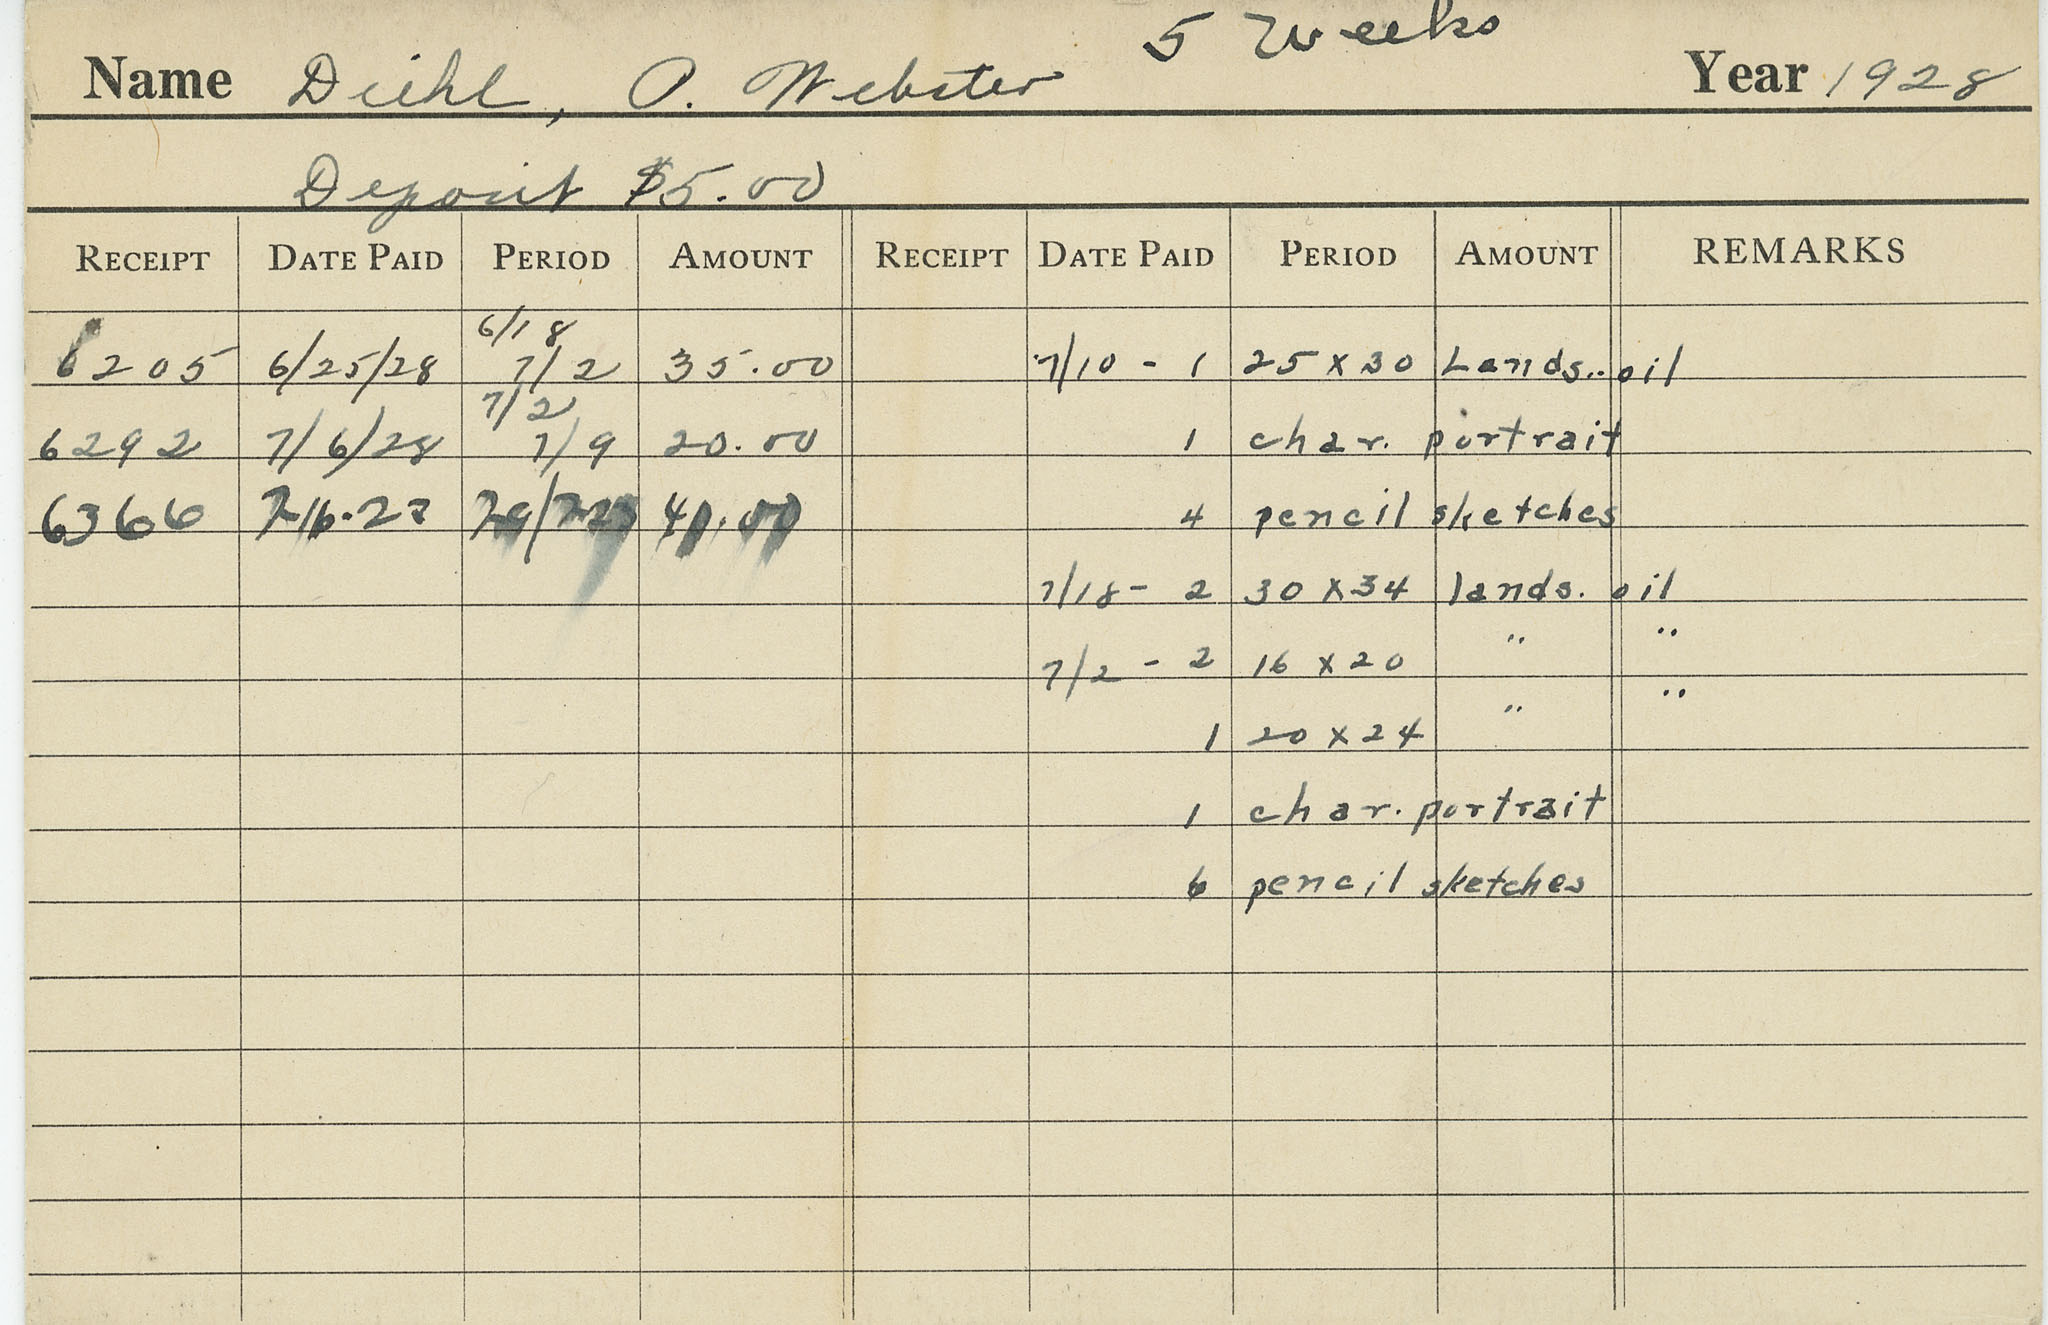 5 Weeks
Name Diehl, O. Webster Year 1928
Deposit $5.00
RECEIPT DATE PAID PERIOD AMOUNT RECEIPT DATE PAID PERIOD AMOUNT REMARKS
6/18
6205 6/25/28 7/2 35.00 7/10 - 1 25 x 30 Lands.. oil
7/2
6292 7/6/28 7/9 20.00 1 char. portrait
6366 7-16-27 7-9/7-23 40.00 4 pencil sketches
7/18 - 2 30 x 34 lands. oil
7/2 - 2 16 x 20 " "
1 20 x 24 " "
1 char. portrait
6 pencil sketches